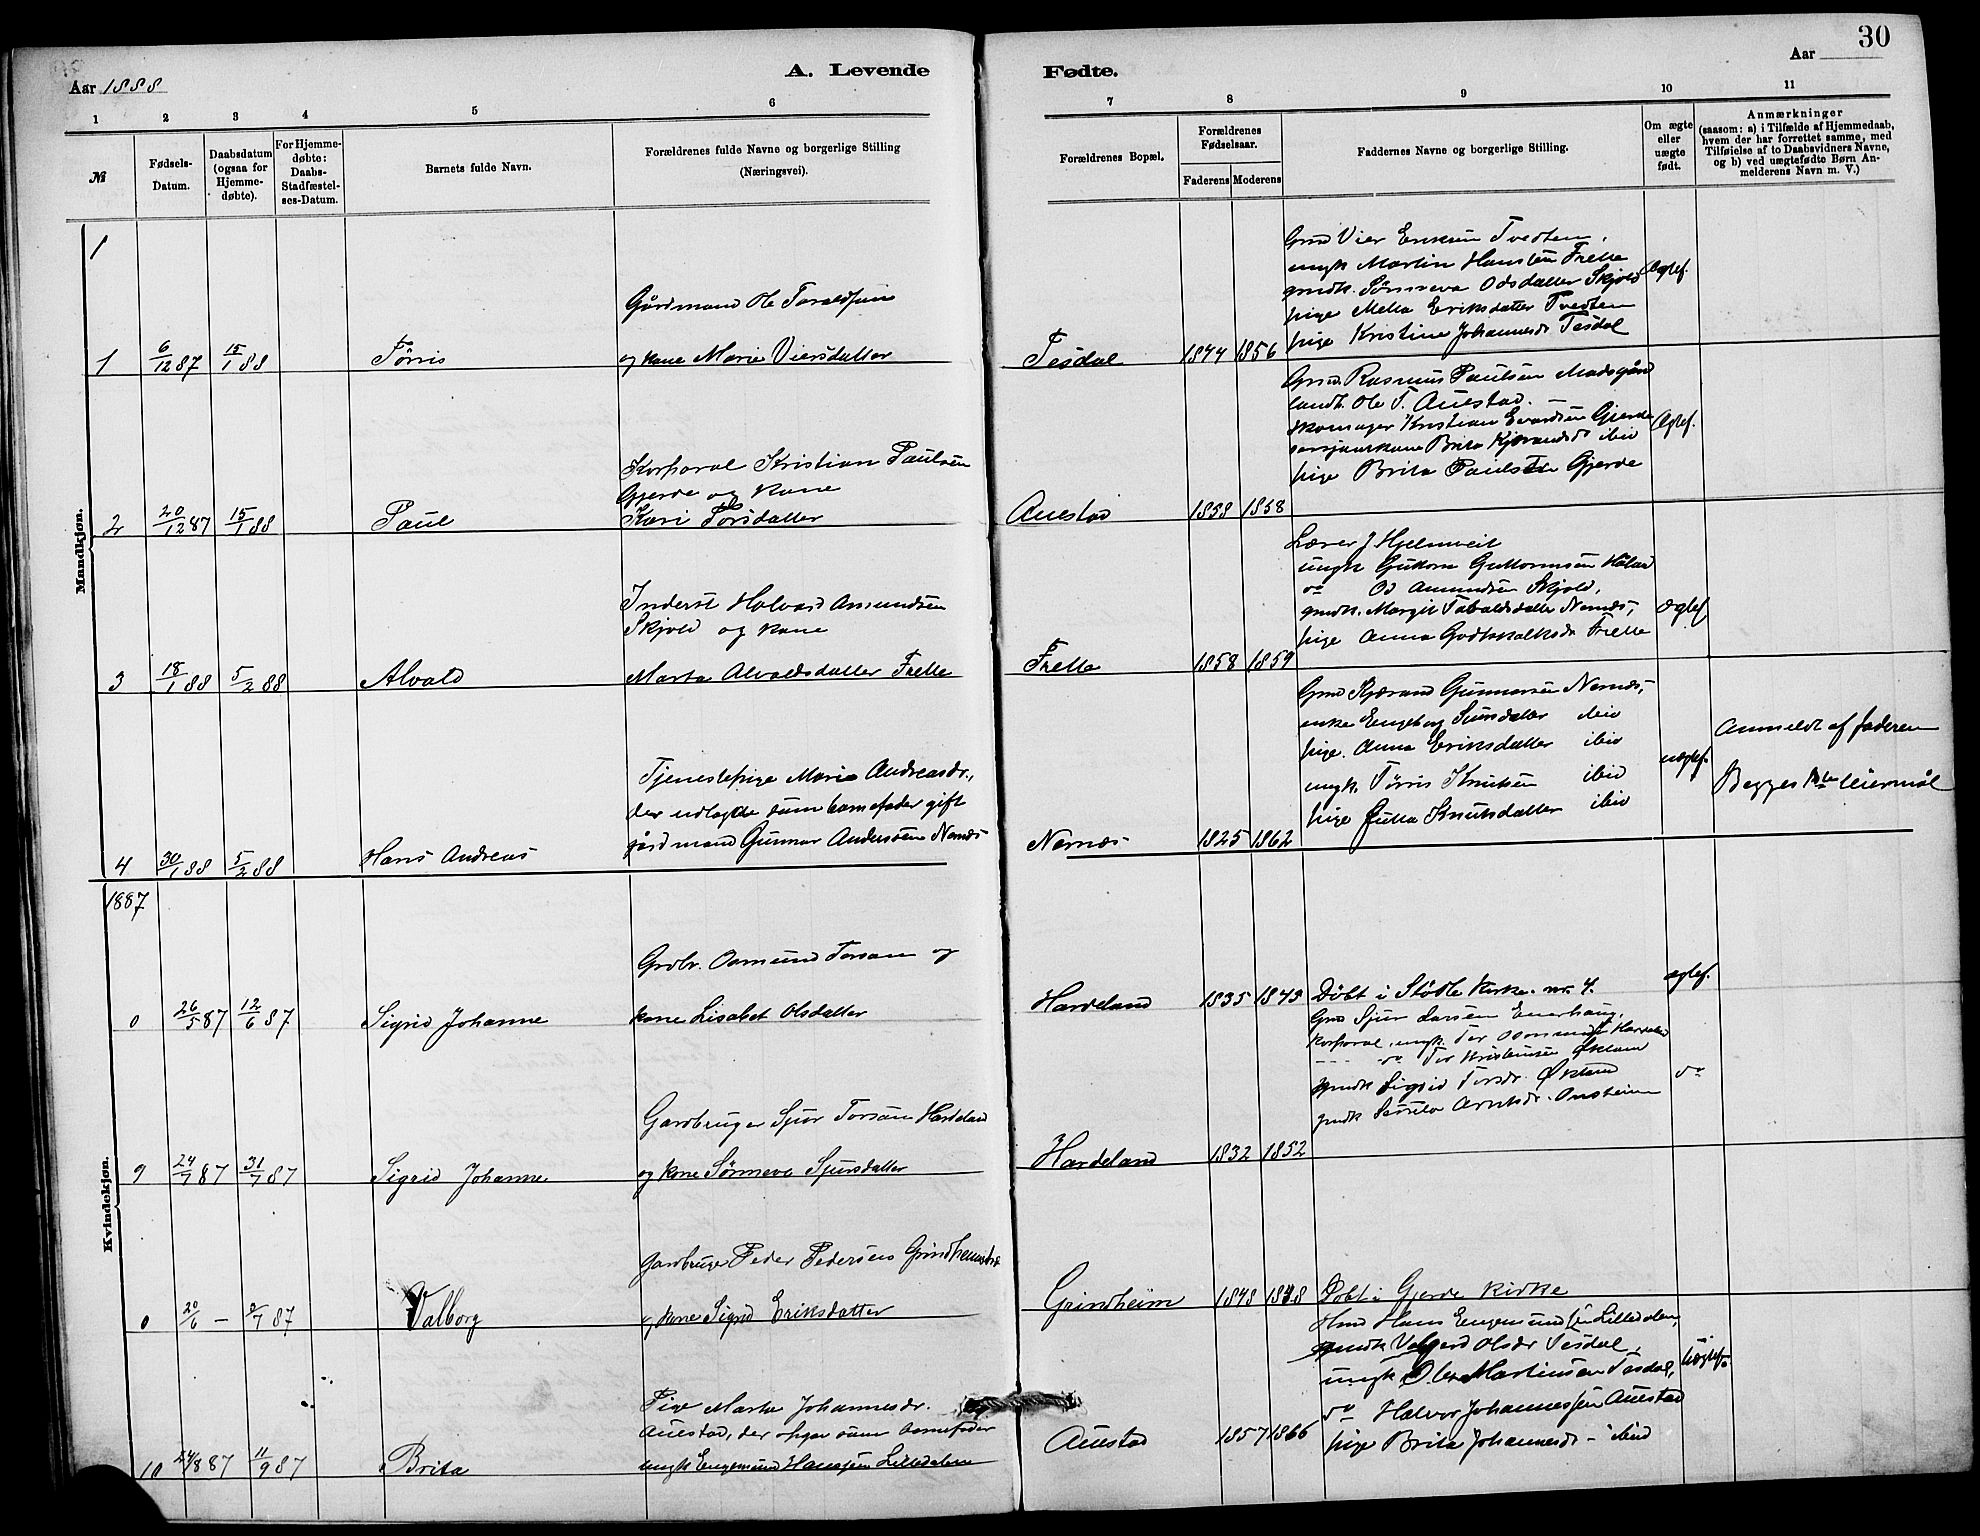 30
Aar 1888
A. Levende Fødte.
Aar
1 2 3 4 5 6 7 8 9 10 11
№
Fødsels-Datum.
Daabsdatum (ogsaa for Hjemme-døbte).
For Hjemme-døbte: Daabs-Stadfæstel-ses-Datum.
Barnets fulde Navn.
Forældrenes fulde Navne og borgerlige Stilling
(Næringsvei).
Forældrenes Bopæl.
Forældrenes Fødselsaar.
Faderens Moderens
Faddernes Navne og borgerlige Stilling.
Om ægte eller uægte født.
Anmærkninger
(saasom: a) i Tilfælde af Hjemmedaab, hvem der har forrettet samme, med Tilføielse af to Daabsvidners Navne, og b) ved uægtefødte Børn An-melderens Navn m. V.)
Mandkjøn.
1
Gmd Vier Eriksen Tvedten,
ungk Martin Hansen Frette
gmdk. Sønneva Odsdatter Skjold
pige Metta Eriksdatter Tvedten
pige Kristine Johannesd. Tesdal
Ægtef.
Gårdmand Ole Taraldsen
1 6/12 87 15/1 88 Tørris og kone Marie Viersdatter Tesdal 1844 1856
Gmd. Rasmus Paulsen
landh. Ole T. Auestad.
skomager Kristian Evandsen Gjerde
Brita Kjerandsd. ibid
pige Brita Paulsdtr Gjerde
Ægtef.
Korporal Kristian Paulsen
Gjerde og kone
2 20/12 87 15/1 88 Paul Kari Torsdatter Auestad 1858 1858
Lærer J Hjelmveit
ungk Guttorm Guttormsen
do Od Amundsen Skjold,
gmdk. Margit Nernæs,
pige Anna Godtskalksd. Frette
Ægtef
Inderst Halvard Amundsen
Skjold og kone
3 18/1 88 5/2 88 Alvald Marta Alvaldsdatter Frette Frette 1858 1859
Gmd Kjærand Gunnarsen Nernæs,
enke Engeborg Siursdatter ibid
pige. Anna Eriksdatter ibid
ungk. Tørris Knutsen ibid
pige Jutta Knutsdatter ibid
uægtef.
Anmeldt af faderen
Begges leiermål
Tjenestepige Marie Andreasdr.,
der udlagde som barnefader gift
4 30/1 88 5/2 88 Hans Andreas gårdmand Gunnar Andersen Nernæs Nernæs 1825 1862
Kvindekjøn.
1887
Grdbr. Osmund Torsen og
0 26/5 87 12/6 87 Sigrid Johanne kone Lisabet Olsdatter Hardeland 1835 1849 Døbt i Stødle Kirke. nr. 4. ægtef.
Gmd Sjur Larsen
korporal, ungk. Tor Osmunds Hardeland
do Tor Kristensen Økland
gmdk Sigrid Torsdr. Økland
gmdk
do
Gardbruger Sjur Torsen Hardeland
9 24/7 87 31/7 87 Sigrid Johanne og kone Sønneva Sjursdatter Hardeland 1832 1852
Gardbruger Peder Pedersen
0 20/6 – 87 Valborg og kone Sigrid Eriksdatter Grindheim 1848 1848 Døbt i Gjerde kirke
Hmd Hans Engemundsen Lilledalen,
gmdk Valgerd Olsdr Tesdal,
ungk Ole Martinsen Tesdal,
do Halvor Johannessen Auestad
pige Brita Johannesd – ibid
Uægtef.
Pige Marta Johannesdr.
Auestad, der opgav som barnefader
10 24/8 87 11/9 87 Brita ungk Engemund Hanssen Lilledalen Auestad 1857 1866